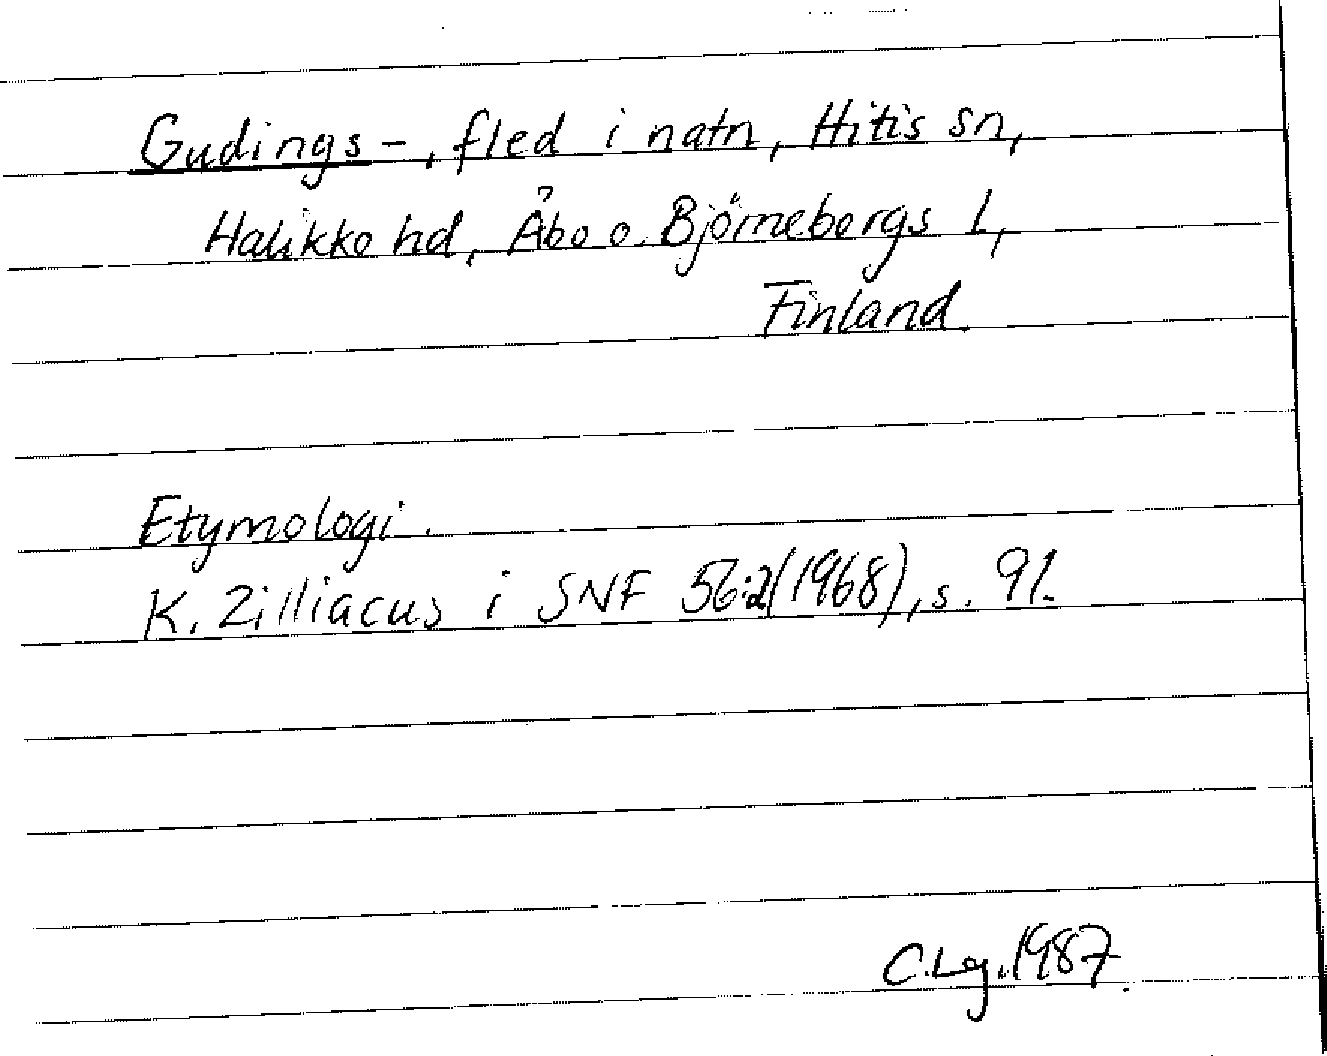 Gudings-, fled i natn, Hitis sn,
Halikko hd, Åbo o. Björneborgs l,
Finland.
Etymologi.
K. Zilliacus i SNF 56:2(1968), s. 91.
C.Lg.1987.